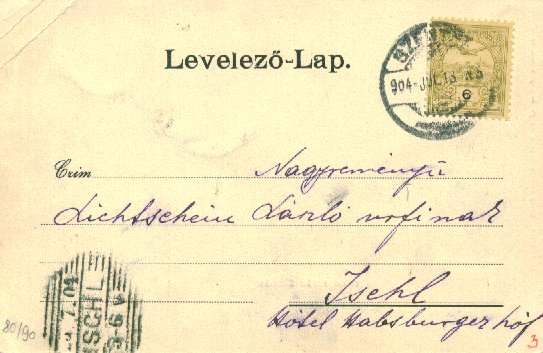 Levelező-Lap.
904 JUL 13
6
Czim Nagyreményű
Lichtschein László urfinak
Ischl
Hotel Habsburgerhof
ISCHL
80/90
3